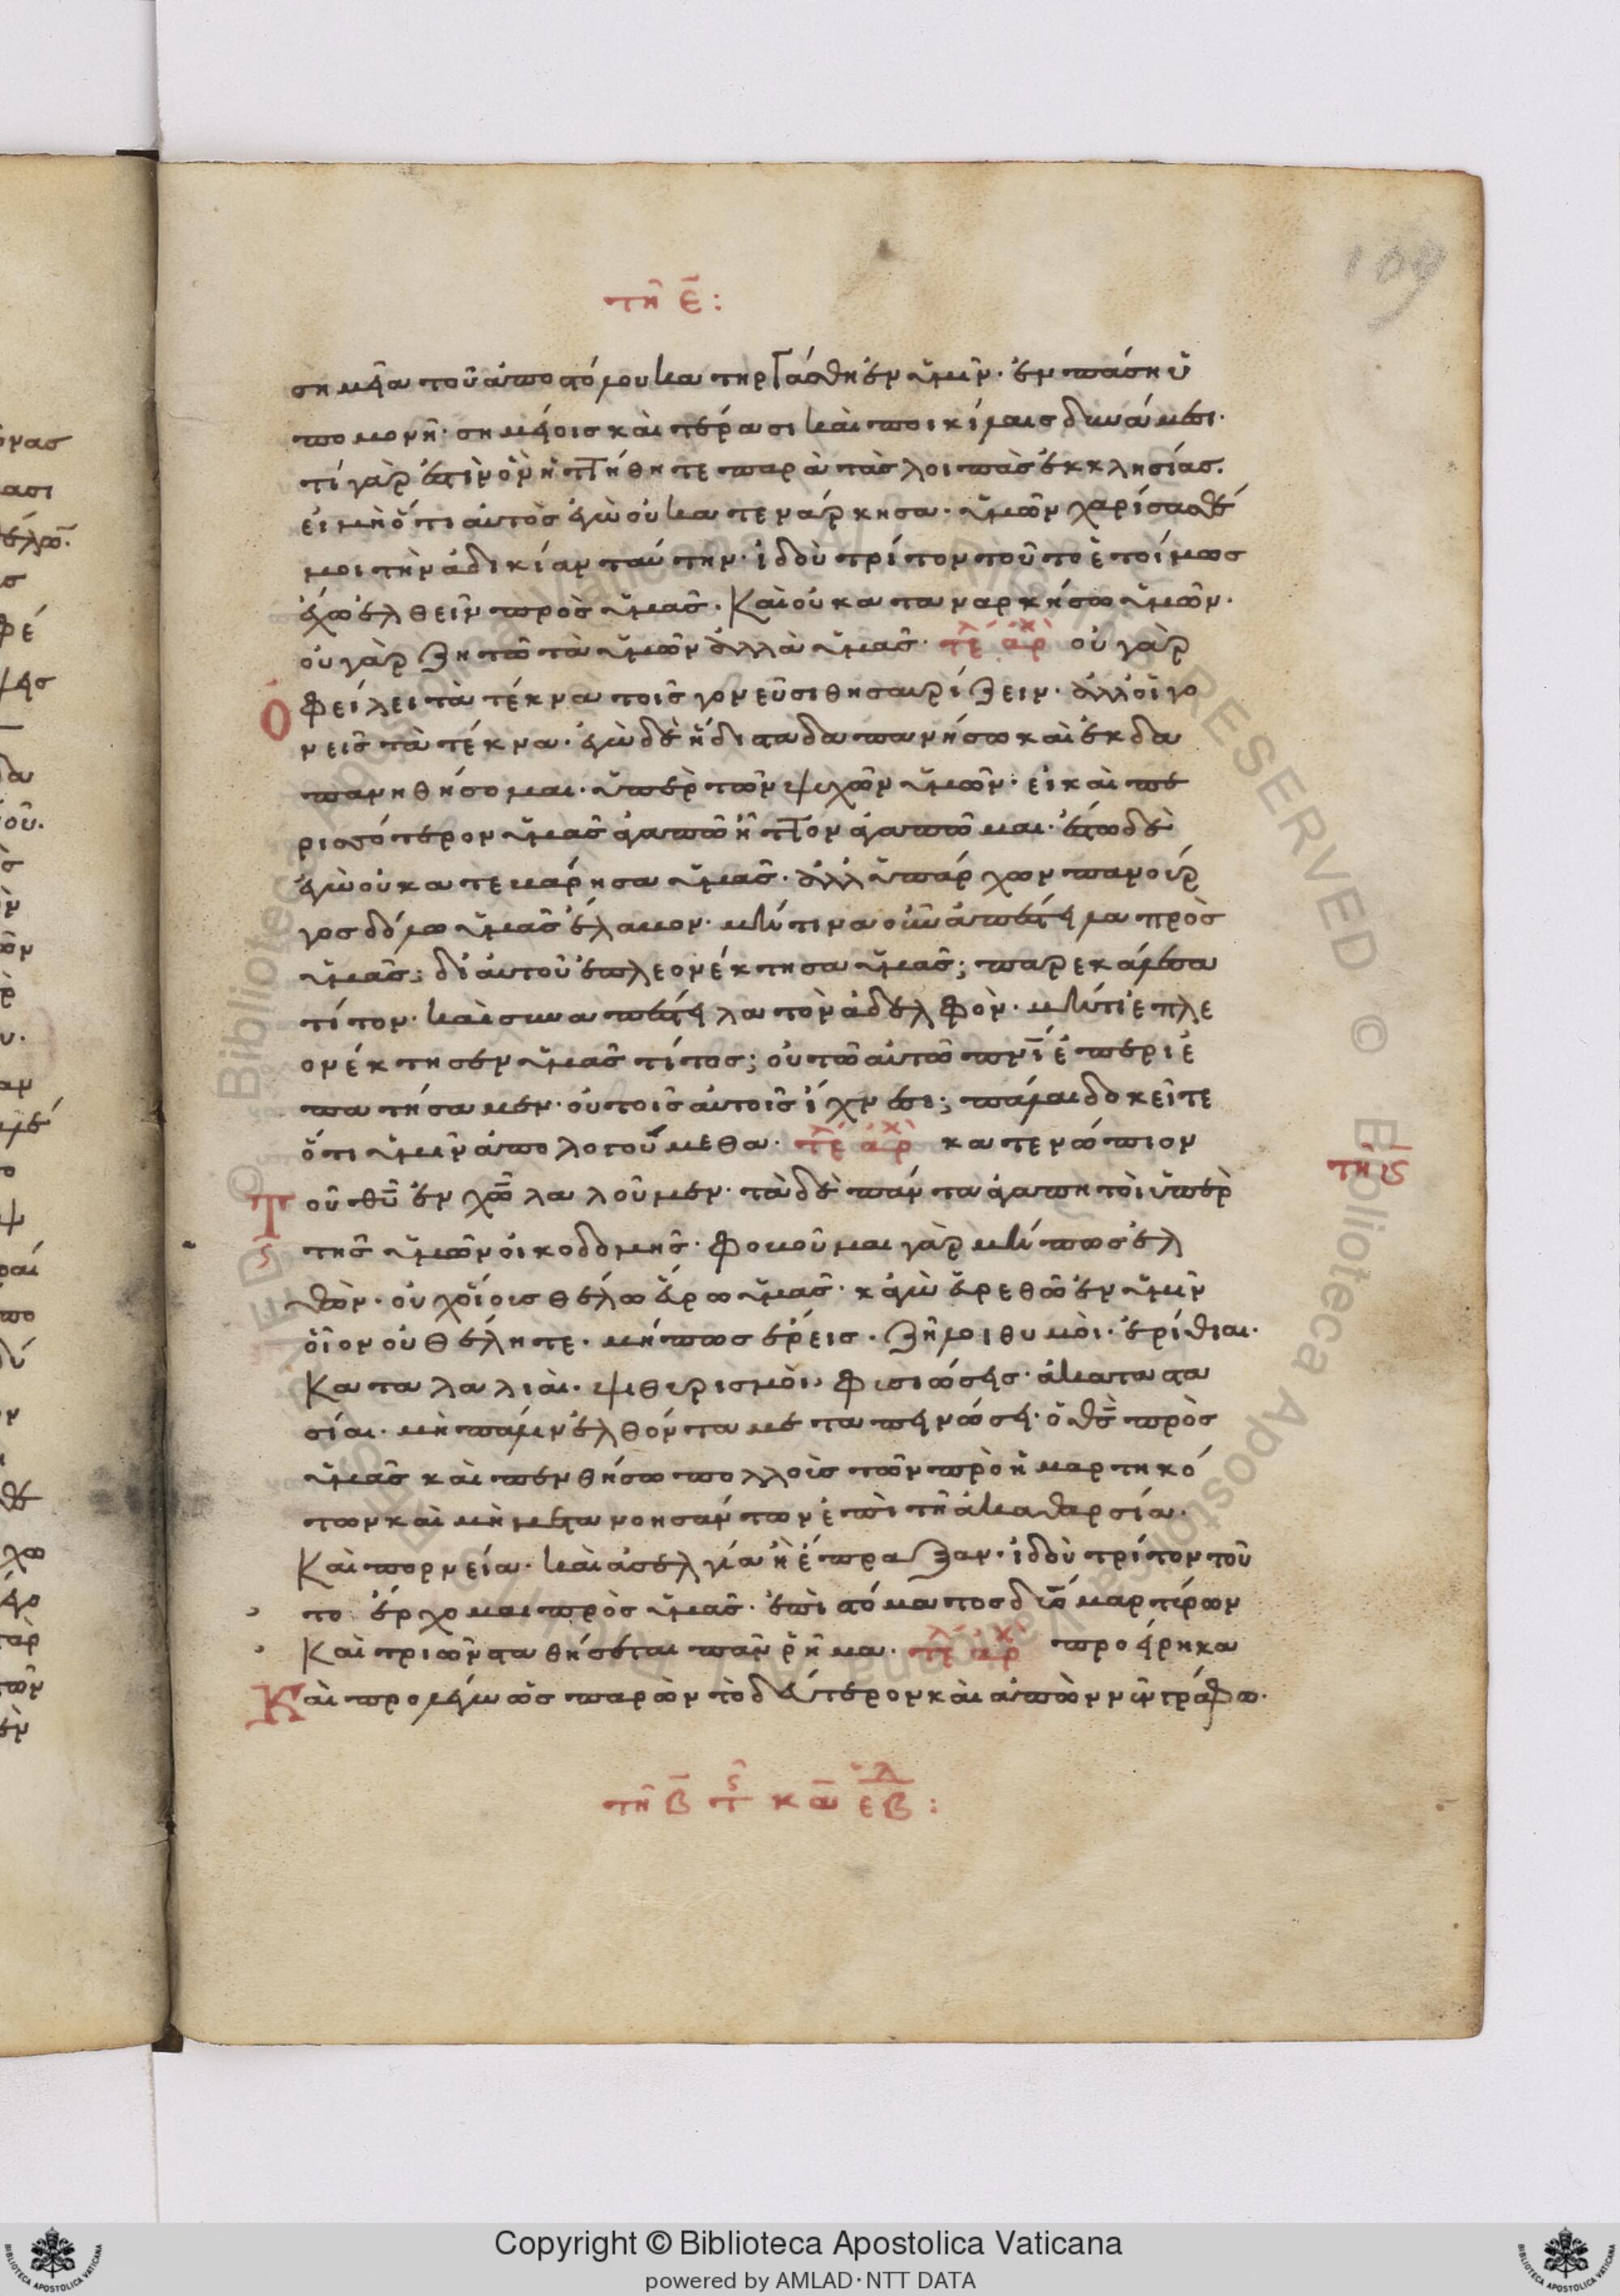 109
τῆ ε̄:
σημεῖα τοῦ ἀποστόλου κατηργάσθη ἐν ὑμῖν· ἐν πάση ὑ
πομονῆ· σημείοις καὶ τέρασι καὶ ποικίλαις δυνάμεσι·
τί γάρ ἐστιν ὃ ἡττήθητε παρὰ τὰς λοιπὰς ἐκκλησίας.
εἰ μὴ ὅτι αὐτὸς ἐγὼ οὐ κατενάρκησα· ὑμῶν χαρίσασθέ
μοι τὴν ἀδικίαν ταύτην· ἰδοὺ τρίτον τοῦτο ἑτοίμως
ἔχω ἐλθεῖν πρὸς ὑμᾶς· Καὶ οὐ καταναρκήσω ὑμῶν·
οὐ γὰρ ζητῶ τὰ ὑμῶν ἀλλὰ ὑμᾶς· τε^λ ἀρ^χ οὐ γὰρ
Ὀφείλει τὰ τέκνα τοῖς γονεῦσι θησαυρίζειν· ἀλλ' οἱ γο
νεῖς τὰ τέκνα· ἐγὼ δὲ ἥδιστα δαπανήσω καὶ ἐκδα
πανηθήσομαι· ὑπὲρ τῶν ψυχῶν ὑμῶν· εἰ καὶ πε
ρισσότερον ὑμᾶς ἀγαπῶ ἧττον ἀγαπῶμαι· ἔστω δὲ
ἐγὼ οὐ κατεβάρησα ὑμᾶς· ἀλλ' ὑπάρχων πανοῦρ
γος δόλω ὑμᾶς ἔλαβον· μή τινα ὧν ἀπέστειλα πρὸς
ὑμᾶς; δι' αὐτοῦ ἐπλεονέκτησα ὑμᾶς; παρεκάλεσα
τίτον· καὶ συναπέστειλα τὸν ἀδελφόν· μή τι ἐπλε
ονέκτησεν ὑμᾶς τίτος; οὐ τῶ αὐτῶ πνὶ ἐπεριε
πατήσαμεν· οὐ τοῖς αὐτοῖς ἴχνεσι; πάλαι δοκεῖτε
ὅτι ὑμῖν ἀπολογούμεθα· τε^λ ἀρ^χ κατενώπιον
Τοῦ θῦ ἐν χῶ λαλοῦμεν· τὰ δὲ πάντα ἀγαπητοὶ ὑπὲρ
τῆς ὑμῶν οἰκοδομῆς· φοβοῦμαι γὰρ μή πως ἐλ
θὼν· οὐχ οἵοις θέλω εὕρω ὑμᾶς· κἀγὼ εὑρεθῶ ἐν ὑμῖν
οἷον οὐ θέλητε· μήπως ἔρεις· ζῆλοι θυμοὶ· ἐρίθιαι·
Καταλαλιαὶ· ψιθυρισμοὶ· φυσιώσεις· ἀκαταστα
σίαι· μὴ πάλιν ἐλθόντα με ταπεινώσει· ὁ θς πρὸς
ὑμᾶς καὶ πενθήσω πολλοὺς τῶν προημαρτηκό
των καὶ μὴ μετανοησάντων ἐπὶ τῆ ἀκαθαρσία·
Καὶ πορνεία· καὶ ἀσελγία ἧ ἔπραξαν· ἰδοὺ τρίτον τοῦ
το ἔρχομαι πρὸς ὑμᾶς· ἐπὶ στόματος δύο μαρτύρων
Καὶ τριῶν σταθήσεται πᾶν ῥῆμα· τε^λ ἀρ^χ προείρηκα
Καὶ προλέγω ὡς παρὼν τὸ δεύτερον καὶ ἀπὼν νῦν γράφω·
τῆ β̄
Copyright © Biblioteca Apostolica Vaticana
powered by AMLAD·NTT DATA